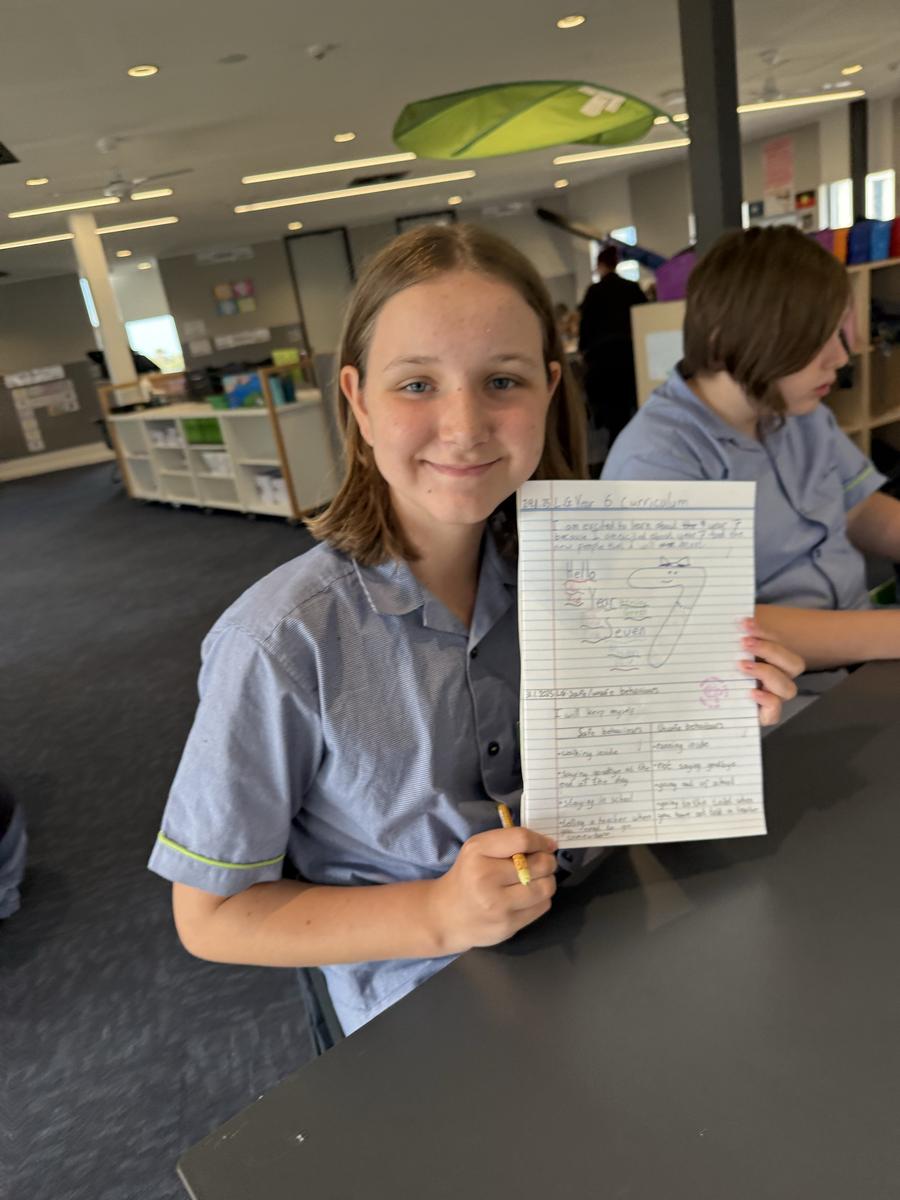 LG Year 6 Curriculum
I am excited to learn about year 7
because I am excited about year 7 and the
new people that I will meet
Hello
Year
Seven
LG: Safe/unsafe behaviours
I will keep myself
Safe behaviours
Unsafe behaviours
• walking inside
• running inside
• saying goodbye at the
end of the day
• not saying goodbye
• staying in school
• going out of school
• telling a teacher when
you need to go
somewhere
• going to the toilet when
you have not told a teacher